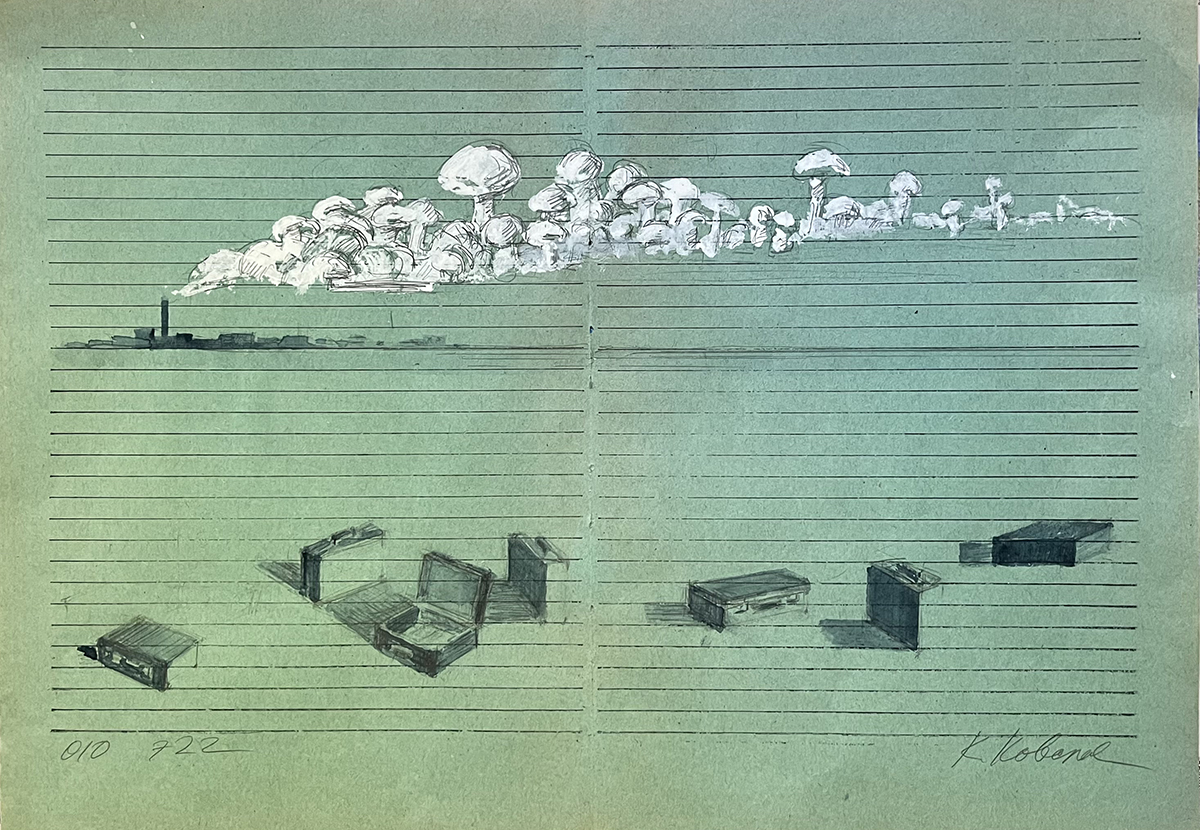 010 722
K. Kobend